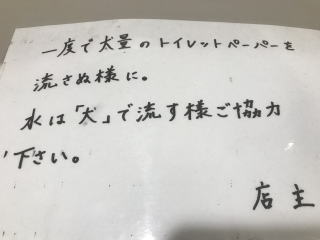 一度で大量のトイレットペーパーを
流さぬ様に。
水は「大」で流す様ご協力
下さい。
店主